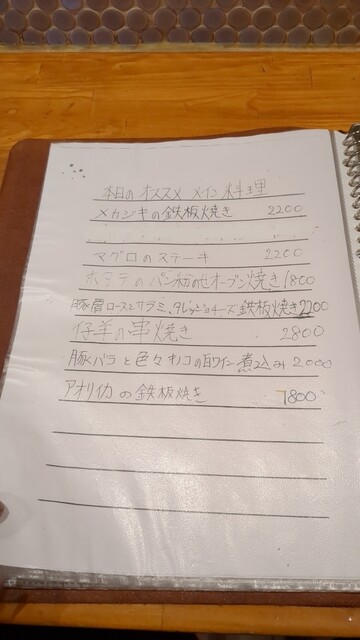 本日のオススメ メイン料理
メカジキの鉄板焼き 2200
マグロのステーキ 2200
ホタテのパン粉のせオーブン焼き 1800
豚肩ロースとサラミ、タレッジョチーズ 鉄板焼き 2200
仔羊の串焼き 2800
豚バラと色々キノコの白ワイン煮込み 2000
アオリイカの鉄板焼き 1800